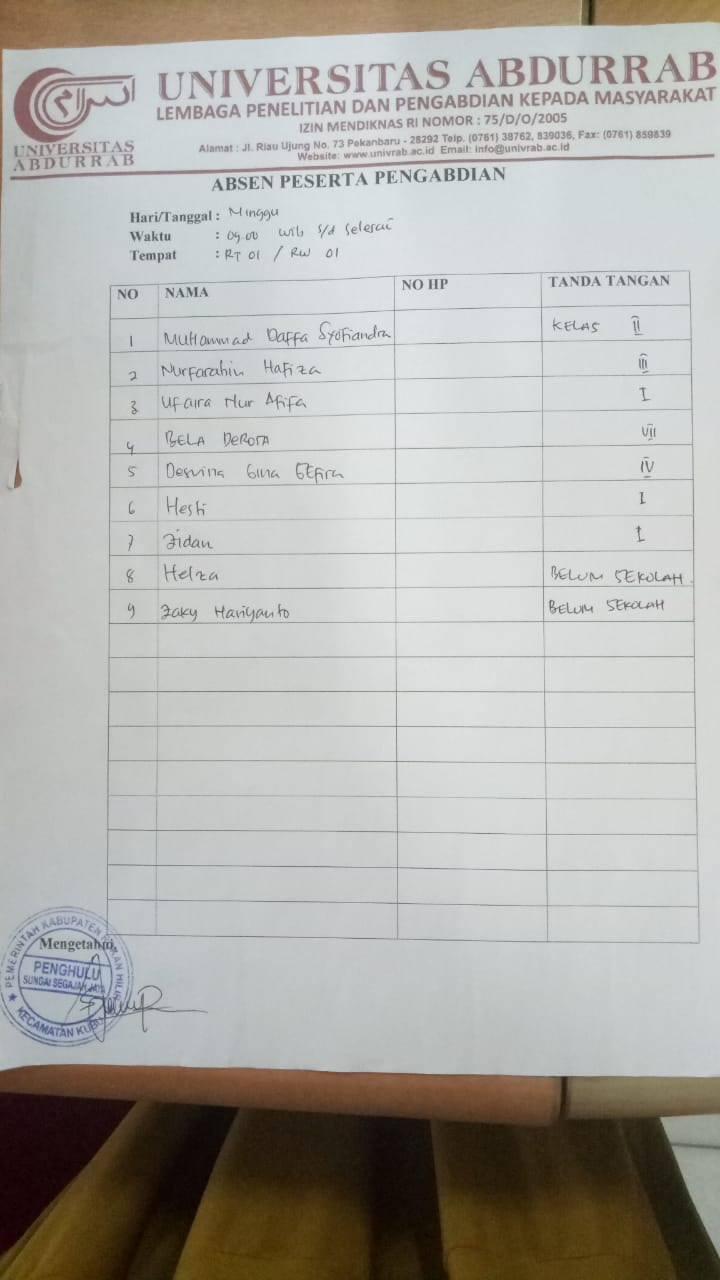 UNIVERSITAS ABDURRAB
LEMBAGA PENELITIAN DAN PENGABDIAN KEPADA MASYARAKAT
IZIN MENDIKNAS RI NOMOR : 75/D/O/2005
Alamat : Jl. Riau Ujung No. 73 Pekanbaru - 28292 Telp. (0761) 38762, 839036, Fax: (0761) 859839
Website: www.univrab.ac.id Email: info@univrab.ac.id
UNIVERSITAS
ABDURRAB
ABSEN PESERTA PENGABDIAN
Hari/Tanggal : Minggu
Waktu : 09.00 wib s/d selesai
Tempat : RT 01 / RW 01
NO NAMA NO HP TANDA TANGAN
1 Muhammad Daffa Syofiandra KELAS II
2 Nurfarahin Hafiza III
3 Ufaira Nur Afifa I
4 BELA DEROTA VII
5 Desvina Gina IV
6 Hesti I
7 Zidan I
8 Helza BELUM SEKOLAH.
9 Zaky Hariyanto BELUM SEKOLAH
Mengetahui
PEMERINTAH KABUPATEN ROKAN HILIR
PENGHULU
SUNGAI SEGAJAH JAYA
KECAMATAN KUBU